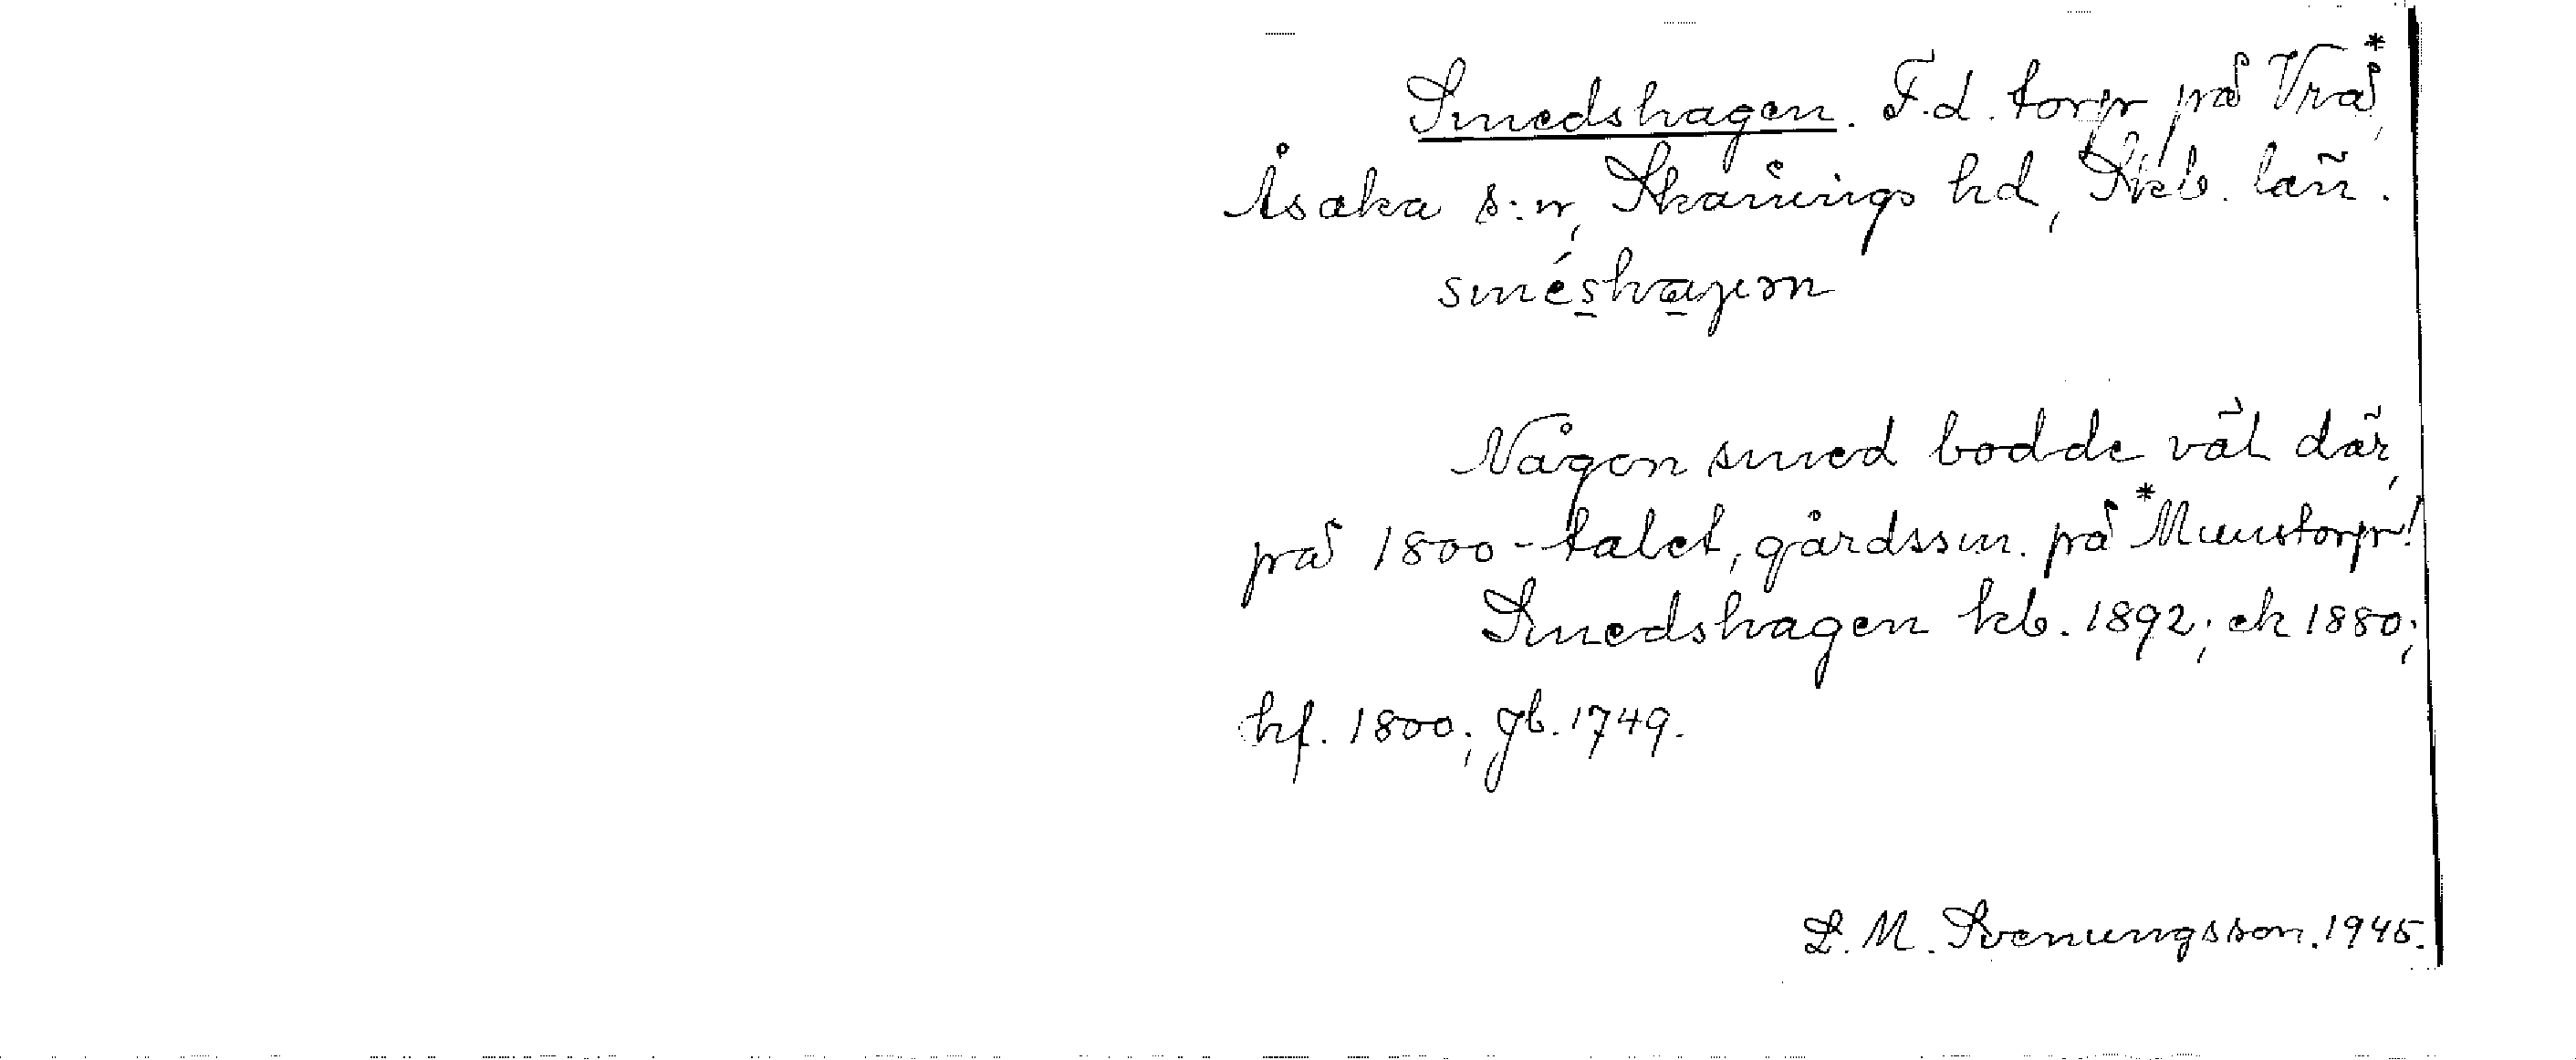 Smedshagen. F.d. torp på Vrå*,
Åsaka s:n, Skånings hd, Skb. län.
sméshagen
Någon smed bodde väl där,
på 1800-talet, gårdssm. på *Munstorp!
Smedshagen kb. 1892; ek 1880;
hf. 1800; jb. 1749.
L. M. Svenungsson. 1945.